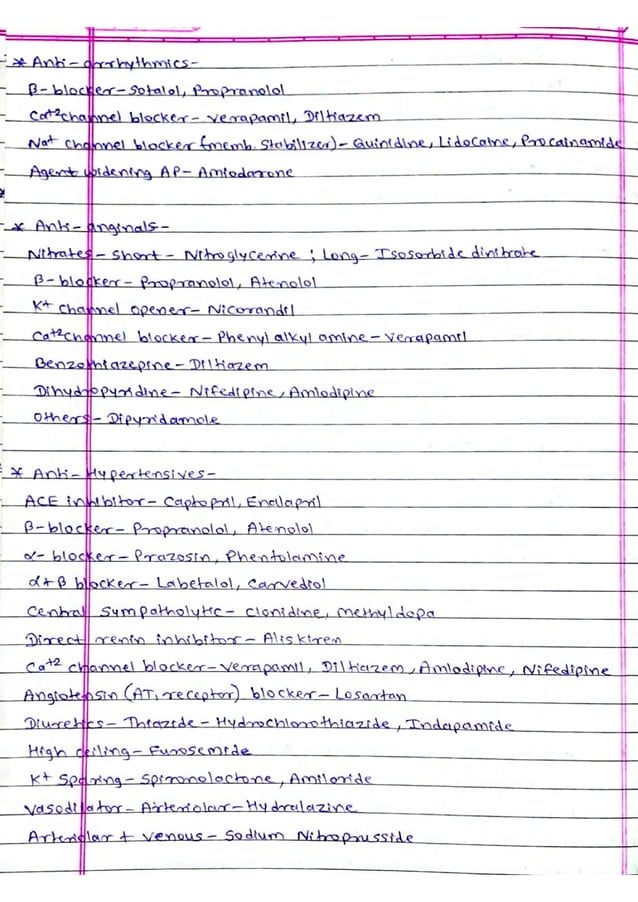 * Anti-arrhythmics-
β-blocker-Sotalol, Propranolol
Ca+2channel blocker-Verapamil, Diltiazem
Na+ channel blocker (memb. Stabilizer)-Quinidine, Lidocaine, Procainamide
Agent widening AP-Amiodarone
* Anti-anginals-
Nitrates-Short-Nitroglycerine; Long-Isosorbide dinitrate
β-blocker-Propranolol, Atenolol
K+ channel opener-Nicorandil
Ca+2channel blocker-Phenyl alkyl amine-Verapamil
Benzothiazepine-Diltiazem
Dihydropyridine-Nifedipine, Amlodipine
Others-Dipyridamole
* Anti-Hypertensives-
ACE inhibitor-Captopril, Enalapril
β-blocker-Propranolol, Atenolol
α-blocker-Prazosin, Phentolamine
α+β blocker-Labetalol, Carvediol
Central Sympatholytic-clonidine, Methyldopa
Direct renin inhibitor-Aliskiren
Ca+2 channel blocker-Verapamil, Diltiazem, Amlodipine, Nifedipine
Angiotensin (AT1 receptor) blocker-Losartan
Diuretics-Thiazide-Hydrochlorothiazide, Indapamide
High ceiling-Furosemide
K+ Sparing-Spironolactone, Amiloride
Vasodilator-Arteriolar-Hydralazine
Arteriolar + Venous-Sodium Nitroprusside